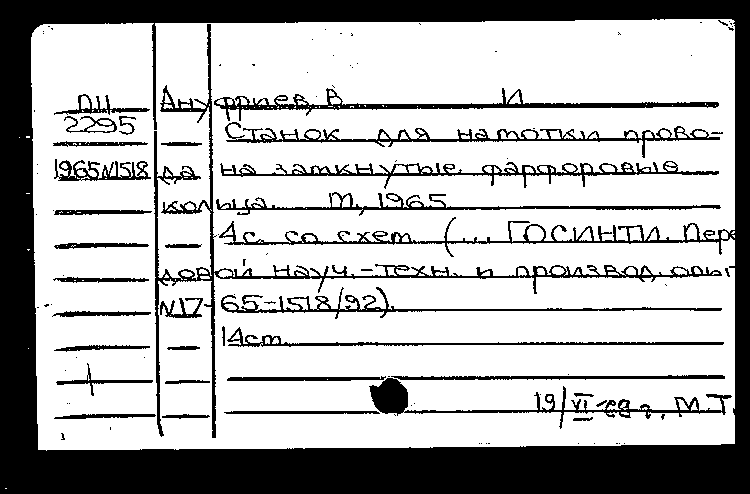 ПЦ Ануфриев, В И
2295 Станок для намотки прово-
1965 N1518 да на замкнутые фарфоровые
кольца. М., 1965
4с. со схем. (... ГОСИНТИ. Пере
довой науч.-техн. и производ. опыт
N17-65-1518/92).
14см.
19/VI г. М.Т.